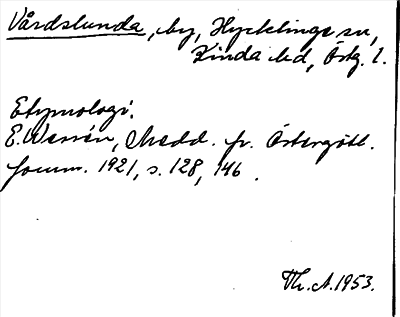 Vårdslunda, by, Hycklinge sn,
Kinda hd, Östg. l.
Etymologi.
E. Wessén, Medd. fr. Östergötl.
fornm. 1921, s. 128, 146.
Th. A. 1953.